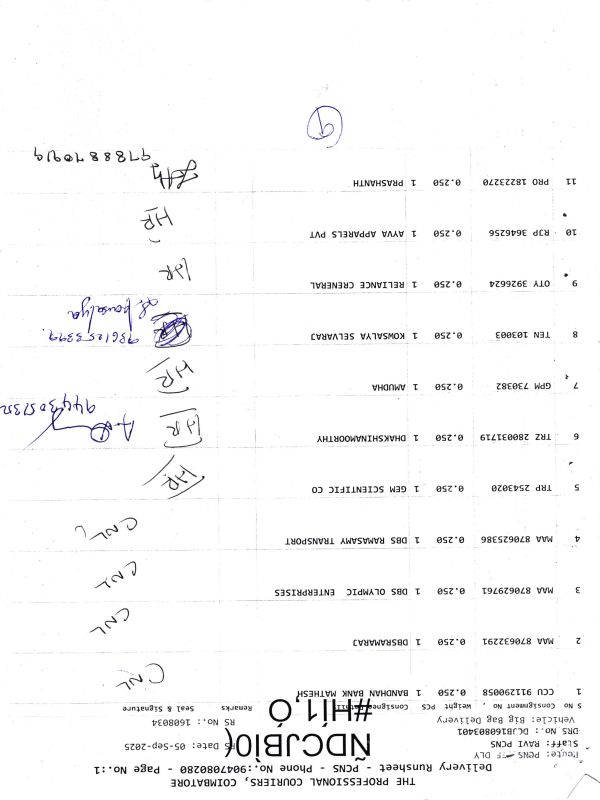 THE PROFESSIONAL COURIERS, COIMBATORE
Delivery Runsheet - PCNS - Phone No.:9047080280 - Page No.:1
Route: PCNS DLY
Staff: RAVI PCNS RS Date: 05-Sep-2025
DRS No.: DCJB160803401 RS No.: 1608034
Vehicle: Big Bag Delivery
ÑDCJBÌ0(
#HÍ1,Ó
S No Consignment No . Weight PCS Consignee Remarks Seal & Signature
1 CCU 91290058 0.250 1 BANDHAN BANK MATHESH CNL
2 MAA 870632291 0.250 1 DBSRAMARAJ CNL
3 MAA 870629761 0.250 1 DBS OLYMPIC ENTERPRISES CNL
4 MAA 870625386 0.250 1 DBS RAMASAMY TRANSPORT CNL
5 TRP 2543020 0.250 1 GEM SCIENTIFIC CO HR
6 TRZ 280031719 0.250 1 DHAKSHINAMOORTHY HR
7 GPM 730382 0.250 1 AMUDHA HR
8 TEN 103003 0.250 1 KOWSALYA SELVARAJ 9361253399
9 OTY 3926624 0.250 1 RELIANCE CRENERAL HR
10 RJP 3646256 0.250 1 AYVA APPARELS PVT HR
11 PRO 18223270 0.250 1 PRASHANTH